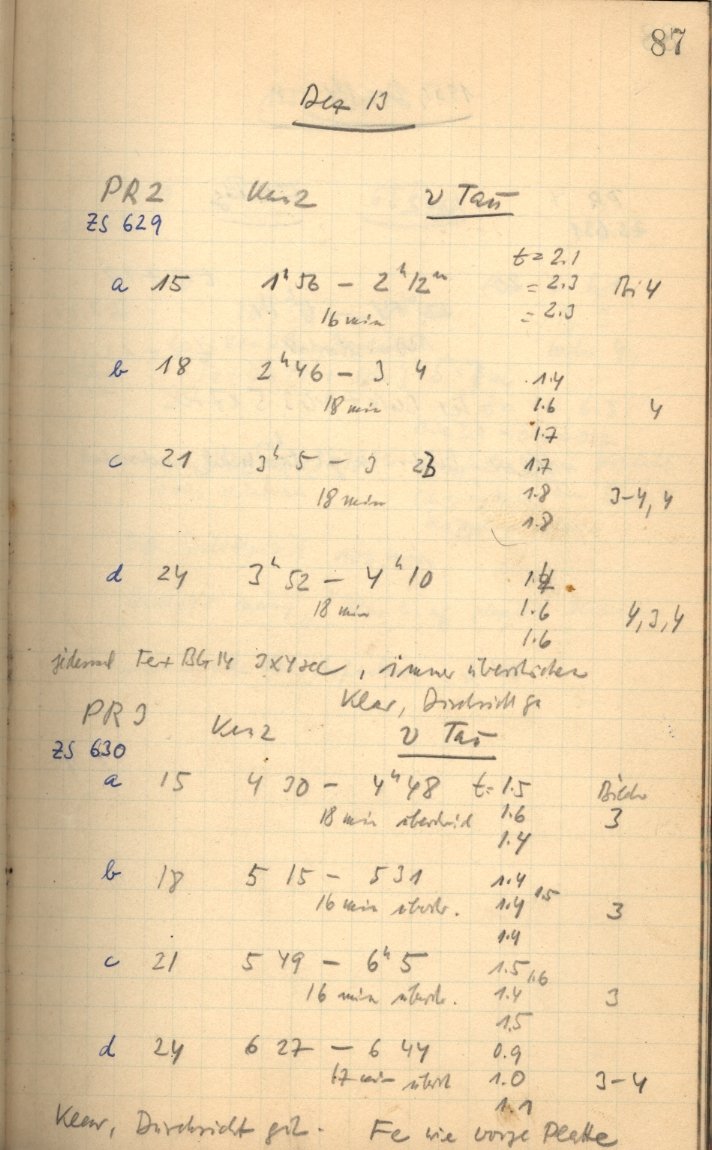 87
Dez 13
PR2 υ Tau
ZS 629
t = 2.1
a 15 1ʰ56 – 2ʰ12ᵐ = 2.3 Bi 4
16 min = 2.3
b 18 2ʰ46 – 3 4 1.4
18 min 1.6 4
1.7
c 21 3ʰ5 – 3 23 1.7
18 min 1.8 3–4, 4
1.8
d 24 3ʰ52 – 4ʰ10
18 min 1.6 4,3,4
1.6
jedesmal Fe+ 3x4 sec, immer überstrichen
Klar, Durchsicht g
PR3 υ Tau
ZS 630
a 15 4 30 – 4ʰ48 t= 1.5 Bilder
18 min 1.6 3
1.4
b 18 5 15 – 5 31 1.4
16 min überstr. 1.4 1.5 3
1.4
c 21 5 49 – 6ʰ5 1.5 1.6
16 min überstr. 1.4 3
1.5
d 24 6 27 – 6 44 0.9
17 min 1.0 3–4
1.1
Klar, Durchsicht gut. Fe wie vorige Platte